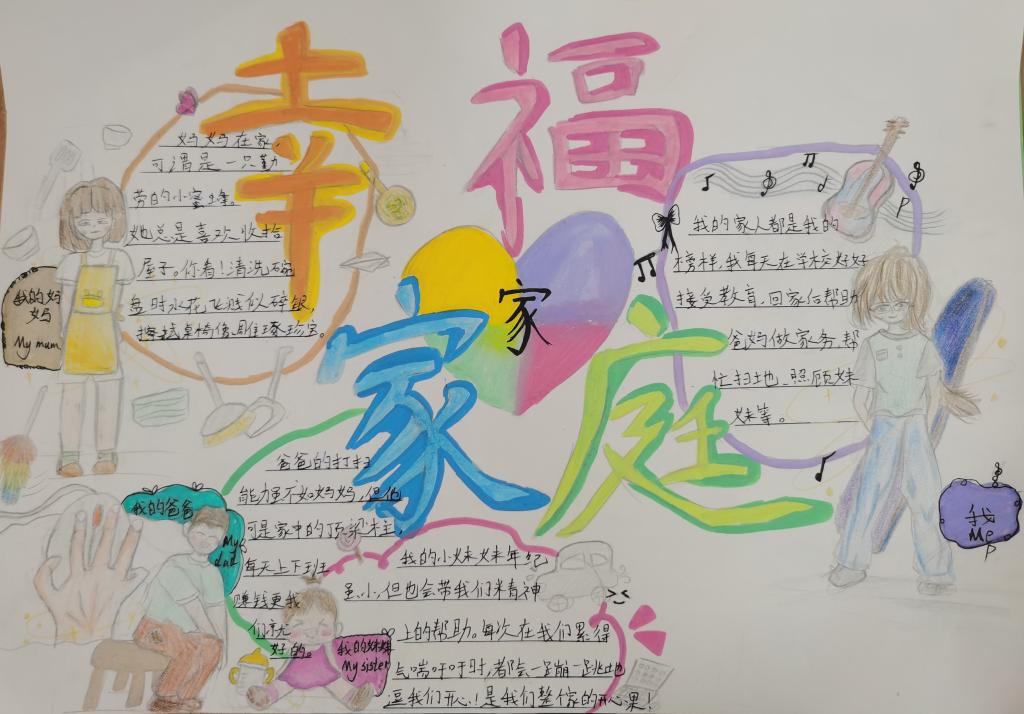 幸福
家庭
家
妈妈在家,
可谓是一只勤
劳的小蜜蜂。
她总是喜欢收拾
屋子。你看!清洗碗
盘时水花飞溅似碎银,
擦拭桌椅像
珍宝。
我的妈
妈
My mum
我的家人都是我的
榜样,我每天在学校好好
接受教育,回家后帮助
爸妈做家务,帮
忙扫地、照顾妹
妹等。
我
Me
爸爸的打扫
能力虽不如妈妈,但他
可是家中的顶梁柱,
每天上下班
赚钱
们
好的。
我的爸爸
My
dad
我的小妹妹年纪
虽小,但也会带我们精神
上的帮助。每次在我们累得
气喘吁吁时,都会一蹦一跳地
逗我们开心!是我们整个家的开心果!
我的妹妹
My sister